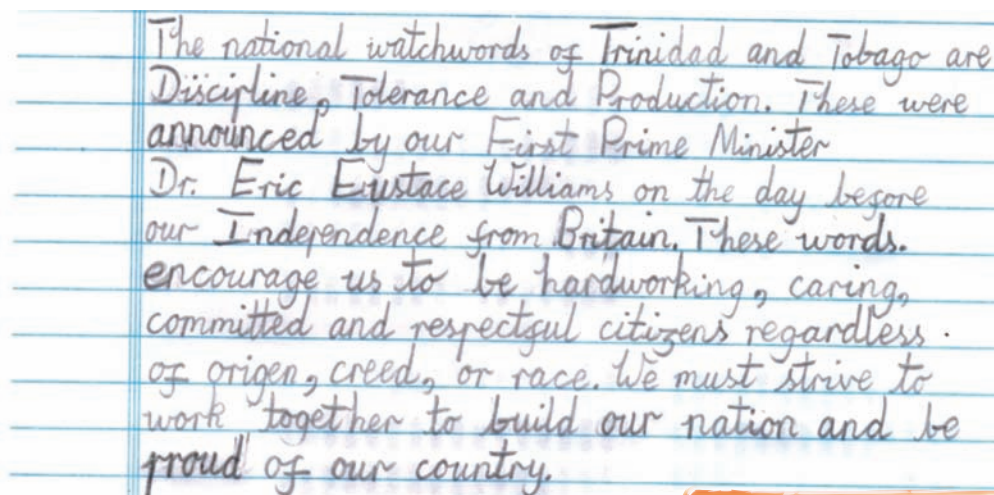 The national watchwords of Trinidad and Tobago are
Discipline, Tolerance and Production. These were
announced by our First Prime Minister
Dr. Eric Eustace Williams on the day before
our Independence from Britain. These words.
encourage us to be hardworking, caring,
committed and respectful citizens regardless .
of origen, creed, or race. We must strive to
work together to build our nation and be
proud of our country.